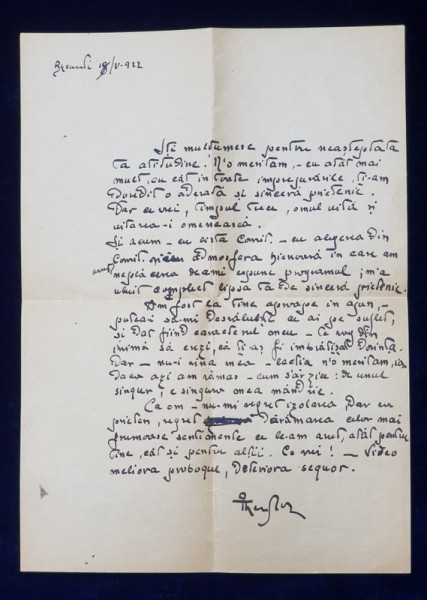 18/V-922
Îți mulțumesc pentru neașteptata
ta atitudine. N'o meritam, - cu atât mai
mult, cu cât în toate împrejurările, ți-am
dovedit o adevărată și sinceră prietenie.
Dar ce vrei, timpul trece, omul uită și
uitarea-i omenească.
Și acum - cu - cu alegerea din
atmosfera în care am
expune programul, m'a
complect lipsa ta de sinceră prietenie.
Am fost la tine aproape în ajun, -
puteai să-mi ce ai pe suflet,
și dat fiind caracterul meu - te rog din
inimă să crezi, că ți-aș fi îmbrățișat dorința.
Dar - nu-i vina mea - aceasta n'o meritam, iar
daca azi am rămas - cum s'ar zice: de unul
singur, e singura mea mândrie.
Ca om - nu-mi regret izolarea. Dar ca
prieten, regret dărâmarea celor mai
frumoase sentimente ce le-am avut, atât pentru
tine, cât și pentru alții. Ce vrei! - Video
meliora proboque, deteriora sequor.